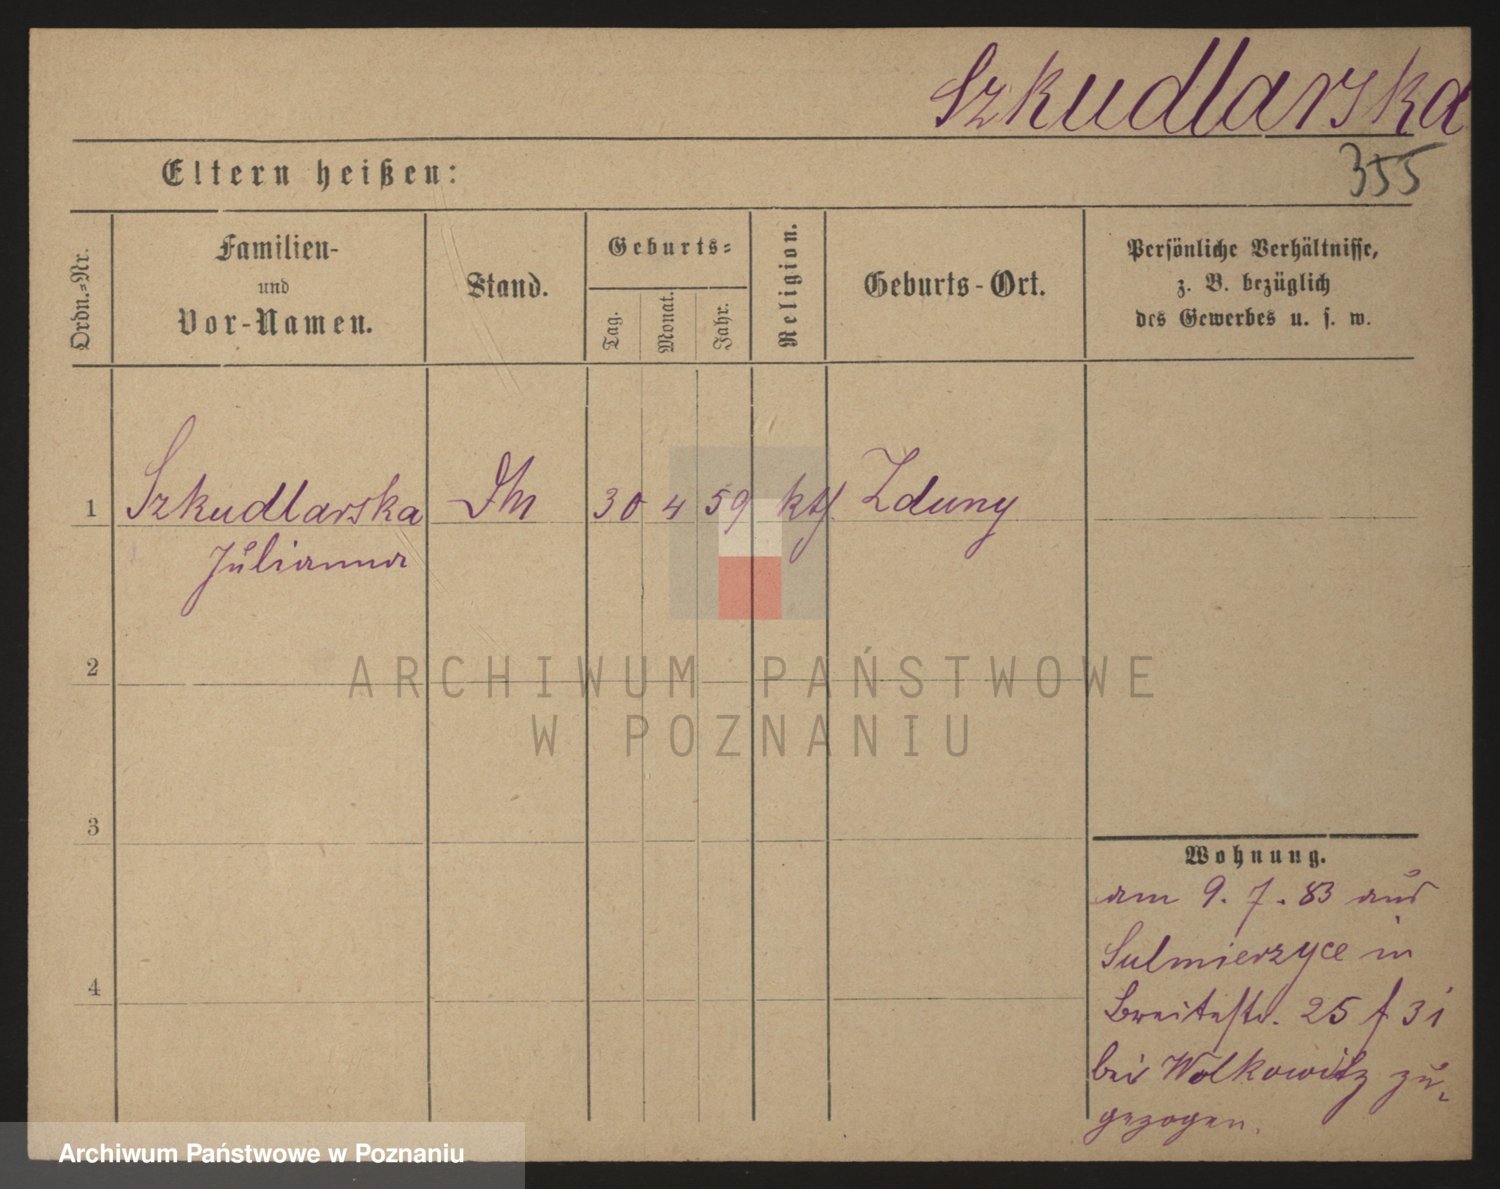 Szkudlarska
355
Eltern heißen:
Ordn.=Nr.
Familien-
und
Vor-Namen.
Stand.
Geburts=
Tag.
Monat.
Jahr.
Religion.
Geburts-Ort.
Persönliche Verhältnisse,
z. B. bezüglich
des Gewerbes u. s. w.
1 Szkudlarska 30 4 59 kth. Zduny
Julianna
2
3
4
Wohnung.
am 9. 7. 83 aus
Sulmierzyce in
Breitestr. 25 31
bei Wolkowitz zu-
gezogen.
ARCHIWUM PAŃSTWOWE
W POZNANIU
Archiwum Państwowe w Poznaniu